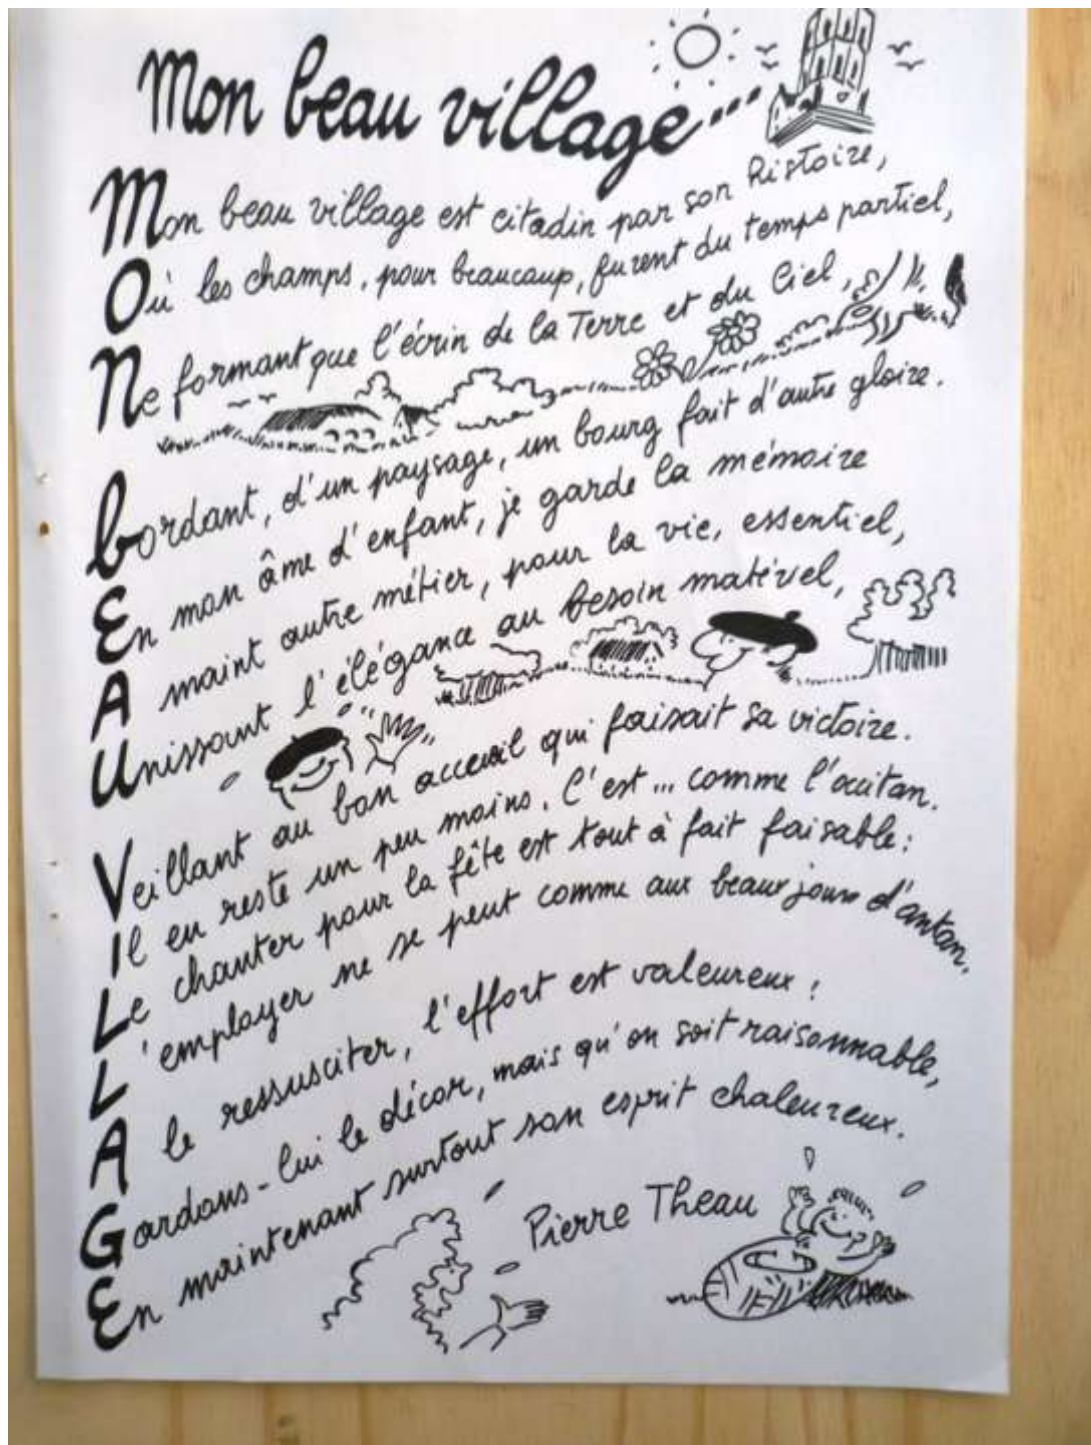 Mon beau village...
Mon beau village est citadin par son histoire,
Où les champs, pour beaucoup, furent du temps partiel,
Ne formant que l'écrin de la Terre et du Ciel,
bordant, d'un paysage, un bourg fait d'autre gloire.
En mon âme d'enfant, je garde la mémoire
A maint autre métier, pour la vie, essentiel,
Unissant l'élégance au besoin matériel,
Veillant au bon accueil qui faisait sa victoire.
Il en reste un peu moins. C'est... comme l'occitan.
Le chanter pour la fête est tout à fait faisable :
L'employer ne se peut comme aux beaux jours d'antan.
A le ressusciter, l'effort est valeureux :
Gardons-lui le décor, mais qu'on soit raisonnable,
En maintenant surtout son esprit chaleureux.
Pierre Theau